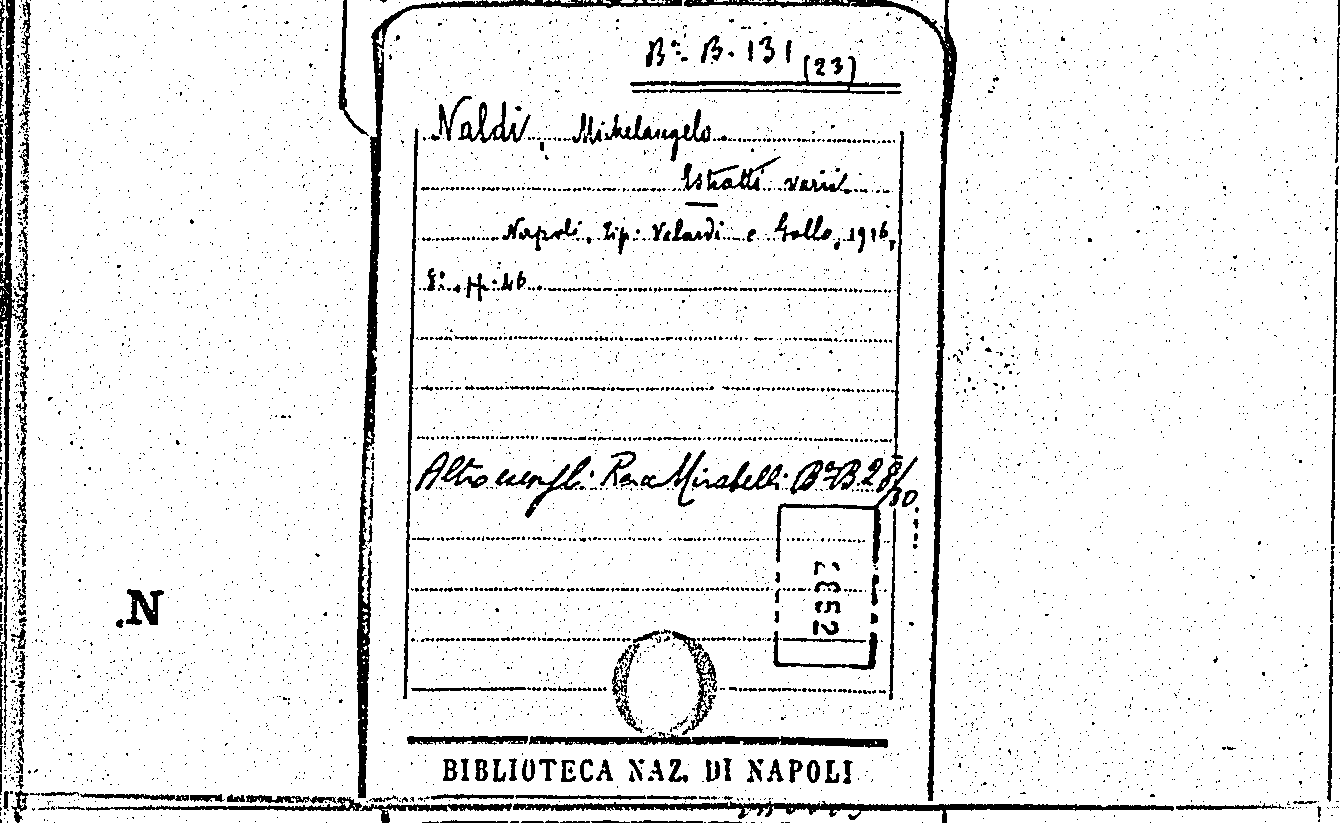 Bª. B. 131 (23)
Naldi, Michelangelo.
Estratti varii.
Napoli, Tip. Velardi e Gallo, 1916,
8º. pp. 46.
Altro esempl: Race Mirabelli: Bª B 28/
30
2832
.N
BIBLIOTECA NAZ. DI NAPOLI